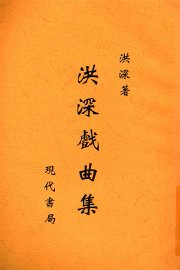 洪深著
洪深戲曲集
现代書局